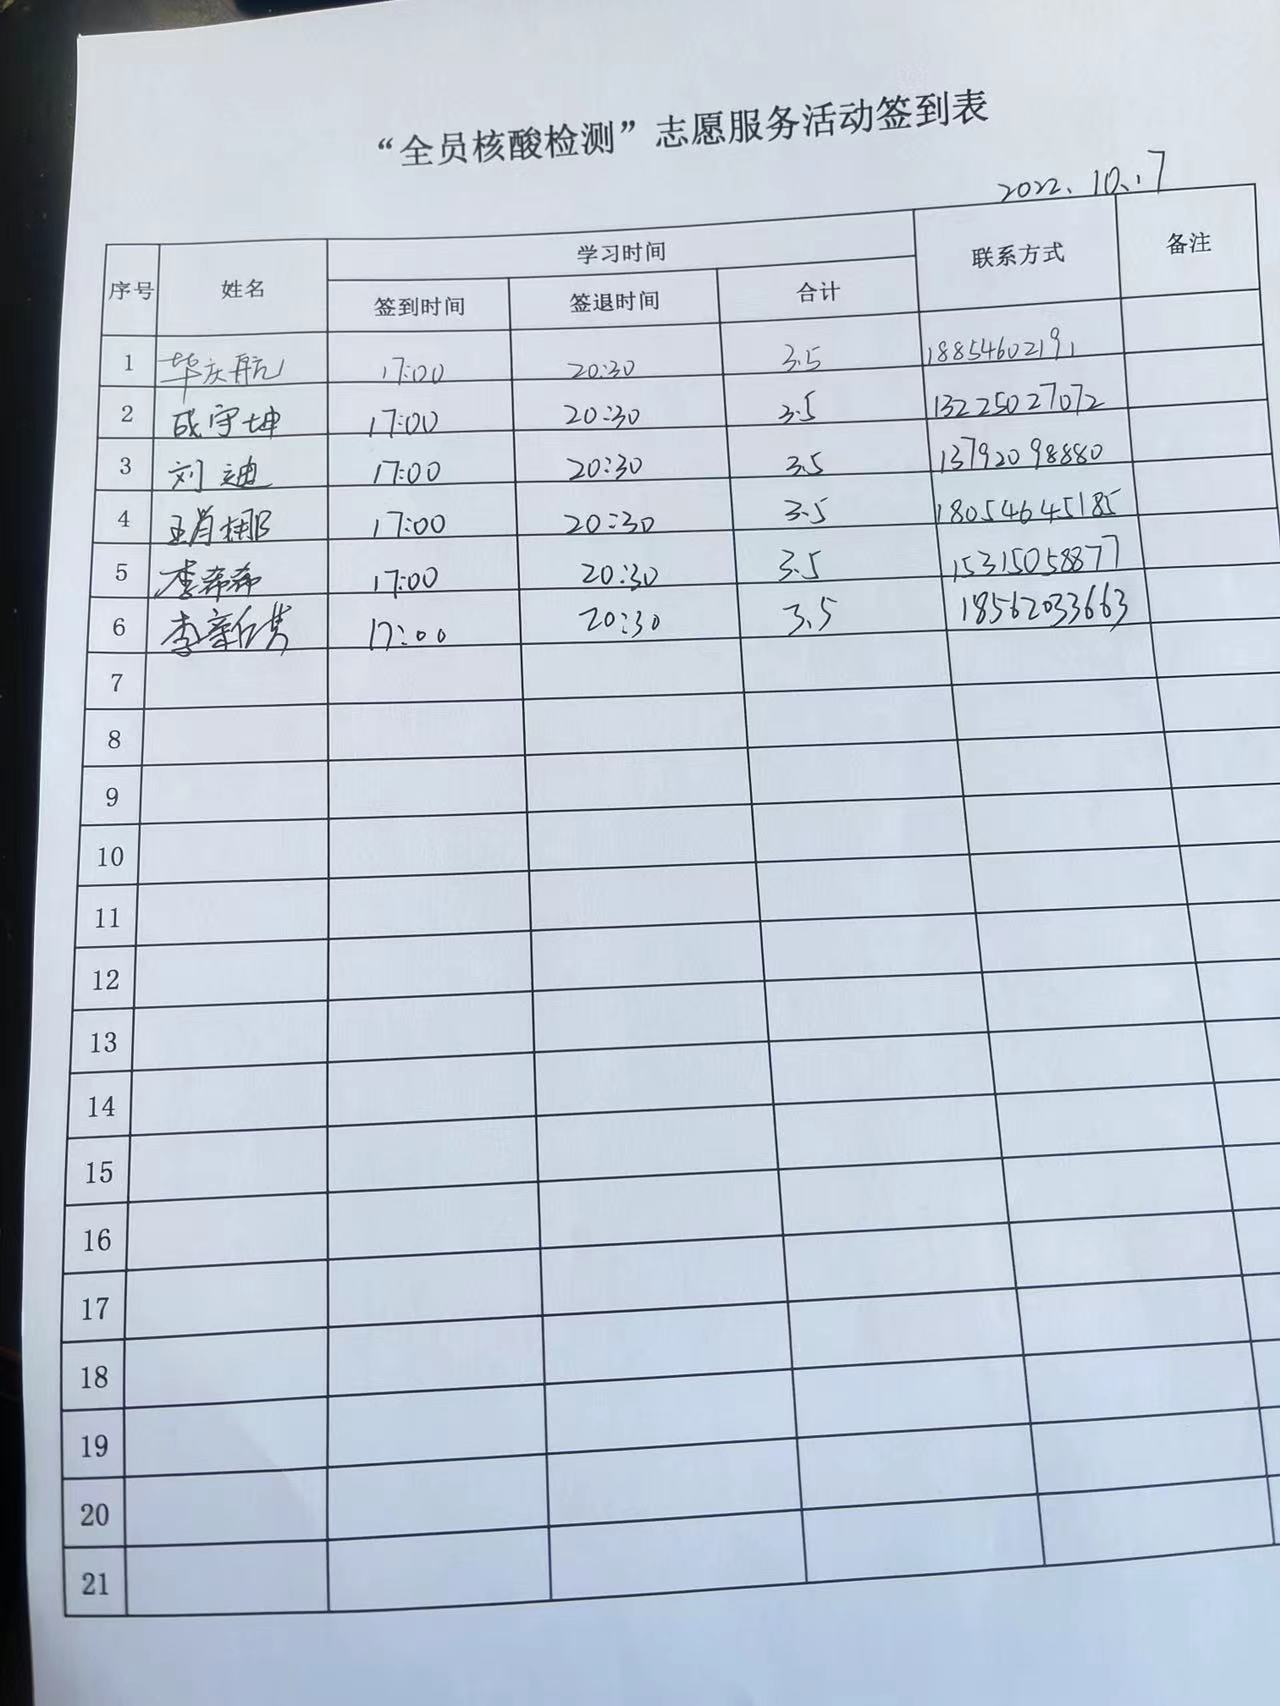 “全员核酸检测”志愿服务活动签到表
2022.10.17
序号 姓名 学习时间 联系方式 备注
签到时间 签退时间 合计
1 毕庆航 17:00 20:30 3.5 18854602191
2 成守坤 17:00 20:30 3.5 13225027072
3 刘迪 17:00 20:30 3.5 13792098880
4 王肖娜 17:00 20:30 3.5 18054645185
5 李希希 17:00 20:30 3.5 15315058877
6 李 17:00 20:30 3.5 18562033663
7
8
9
10
11
12
13
14
15
16
17
18
19
20
21